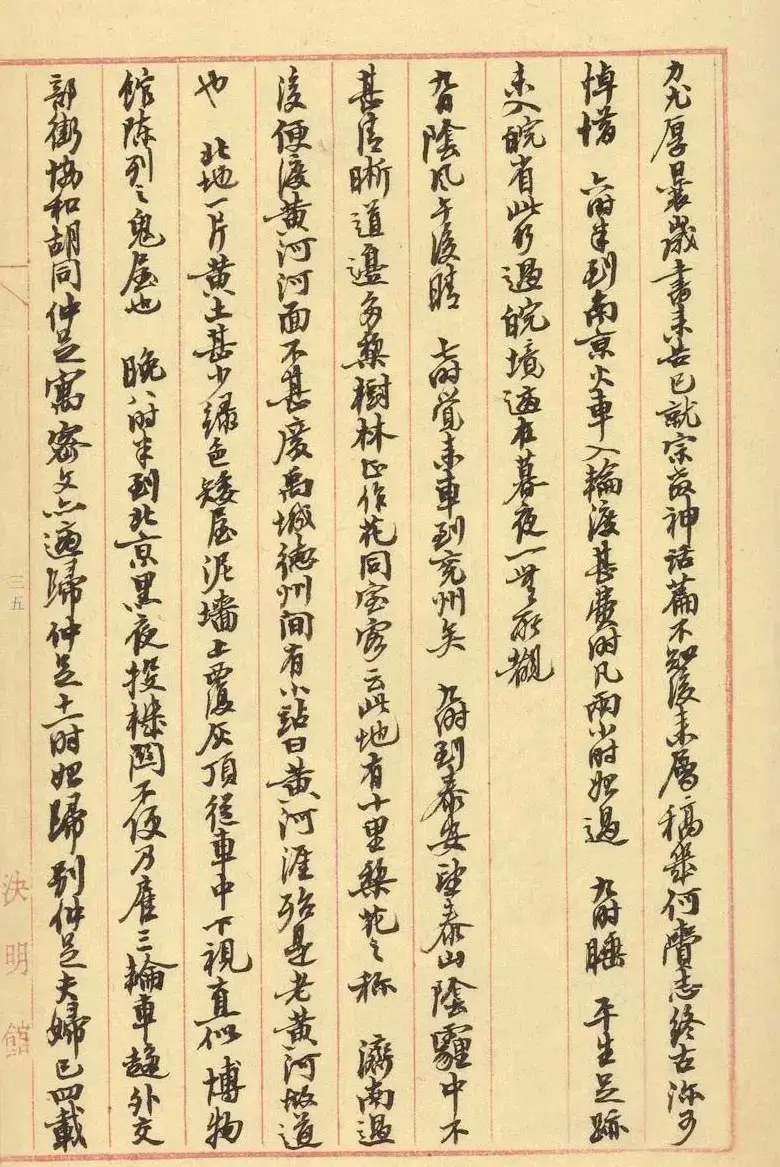 力尤厚曩歲書来告已就宗教神话篇不知後来屬稿幾何賫志終古深可
悼惜 六时半到南京火車入輪渡甚費时凡兩小时始過 九时睡 平生足跡
未入皖省此行過皖境適在暮夜一無所覩
九日陰風午後晴 七时覺来車到兗州矣 九时到泰安望泰山陰霾中不
甚清晰道邊多梨樹林正作花同室客云此地有十里梨花之称 濟南過
後便渡黄河河面不甚廣禹城德州间有小站曰黄河涯殆是老黄河故道
也 北地一片黄土甚少绿色矮屋泥墙土覆灰頂從車中下視真似博物
館陈列之鬼屋也 晚八时半到北京黑夜投不便乃雇三輪車趨外交
部街协和胡同仲足寓密文亦適歸仲足十一时始歸别仲足夫婦已四載
三五
決明館